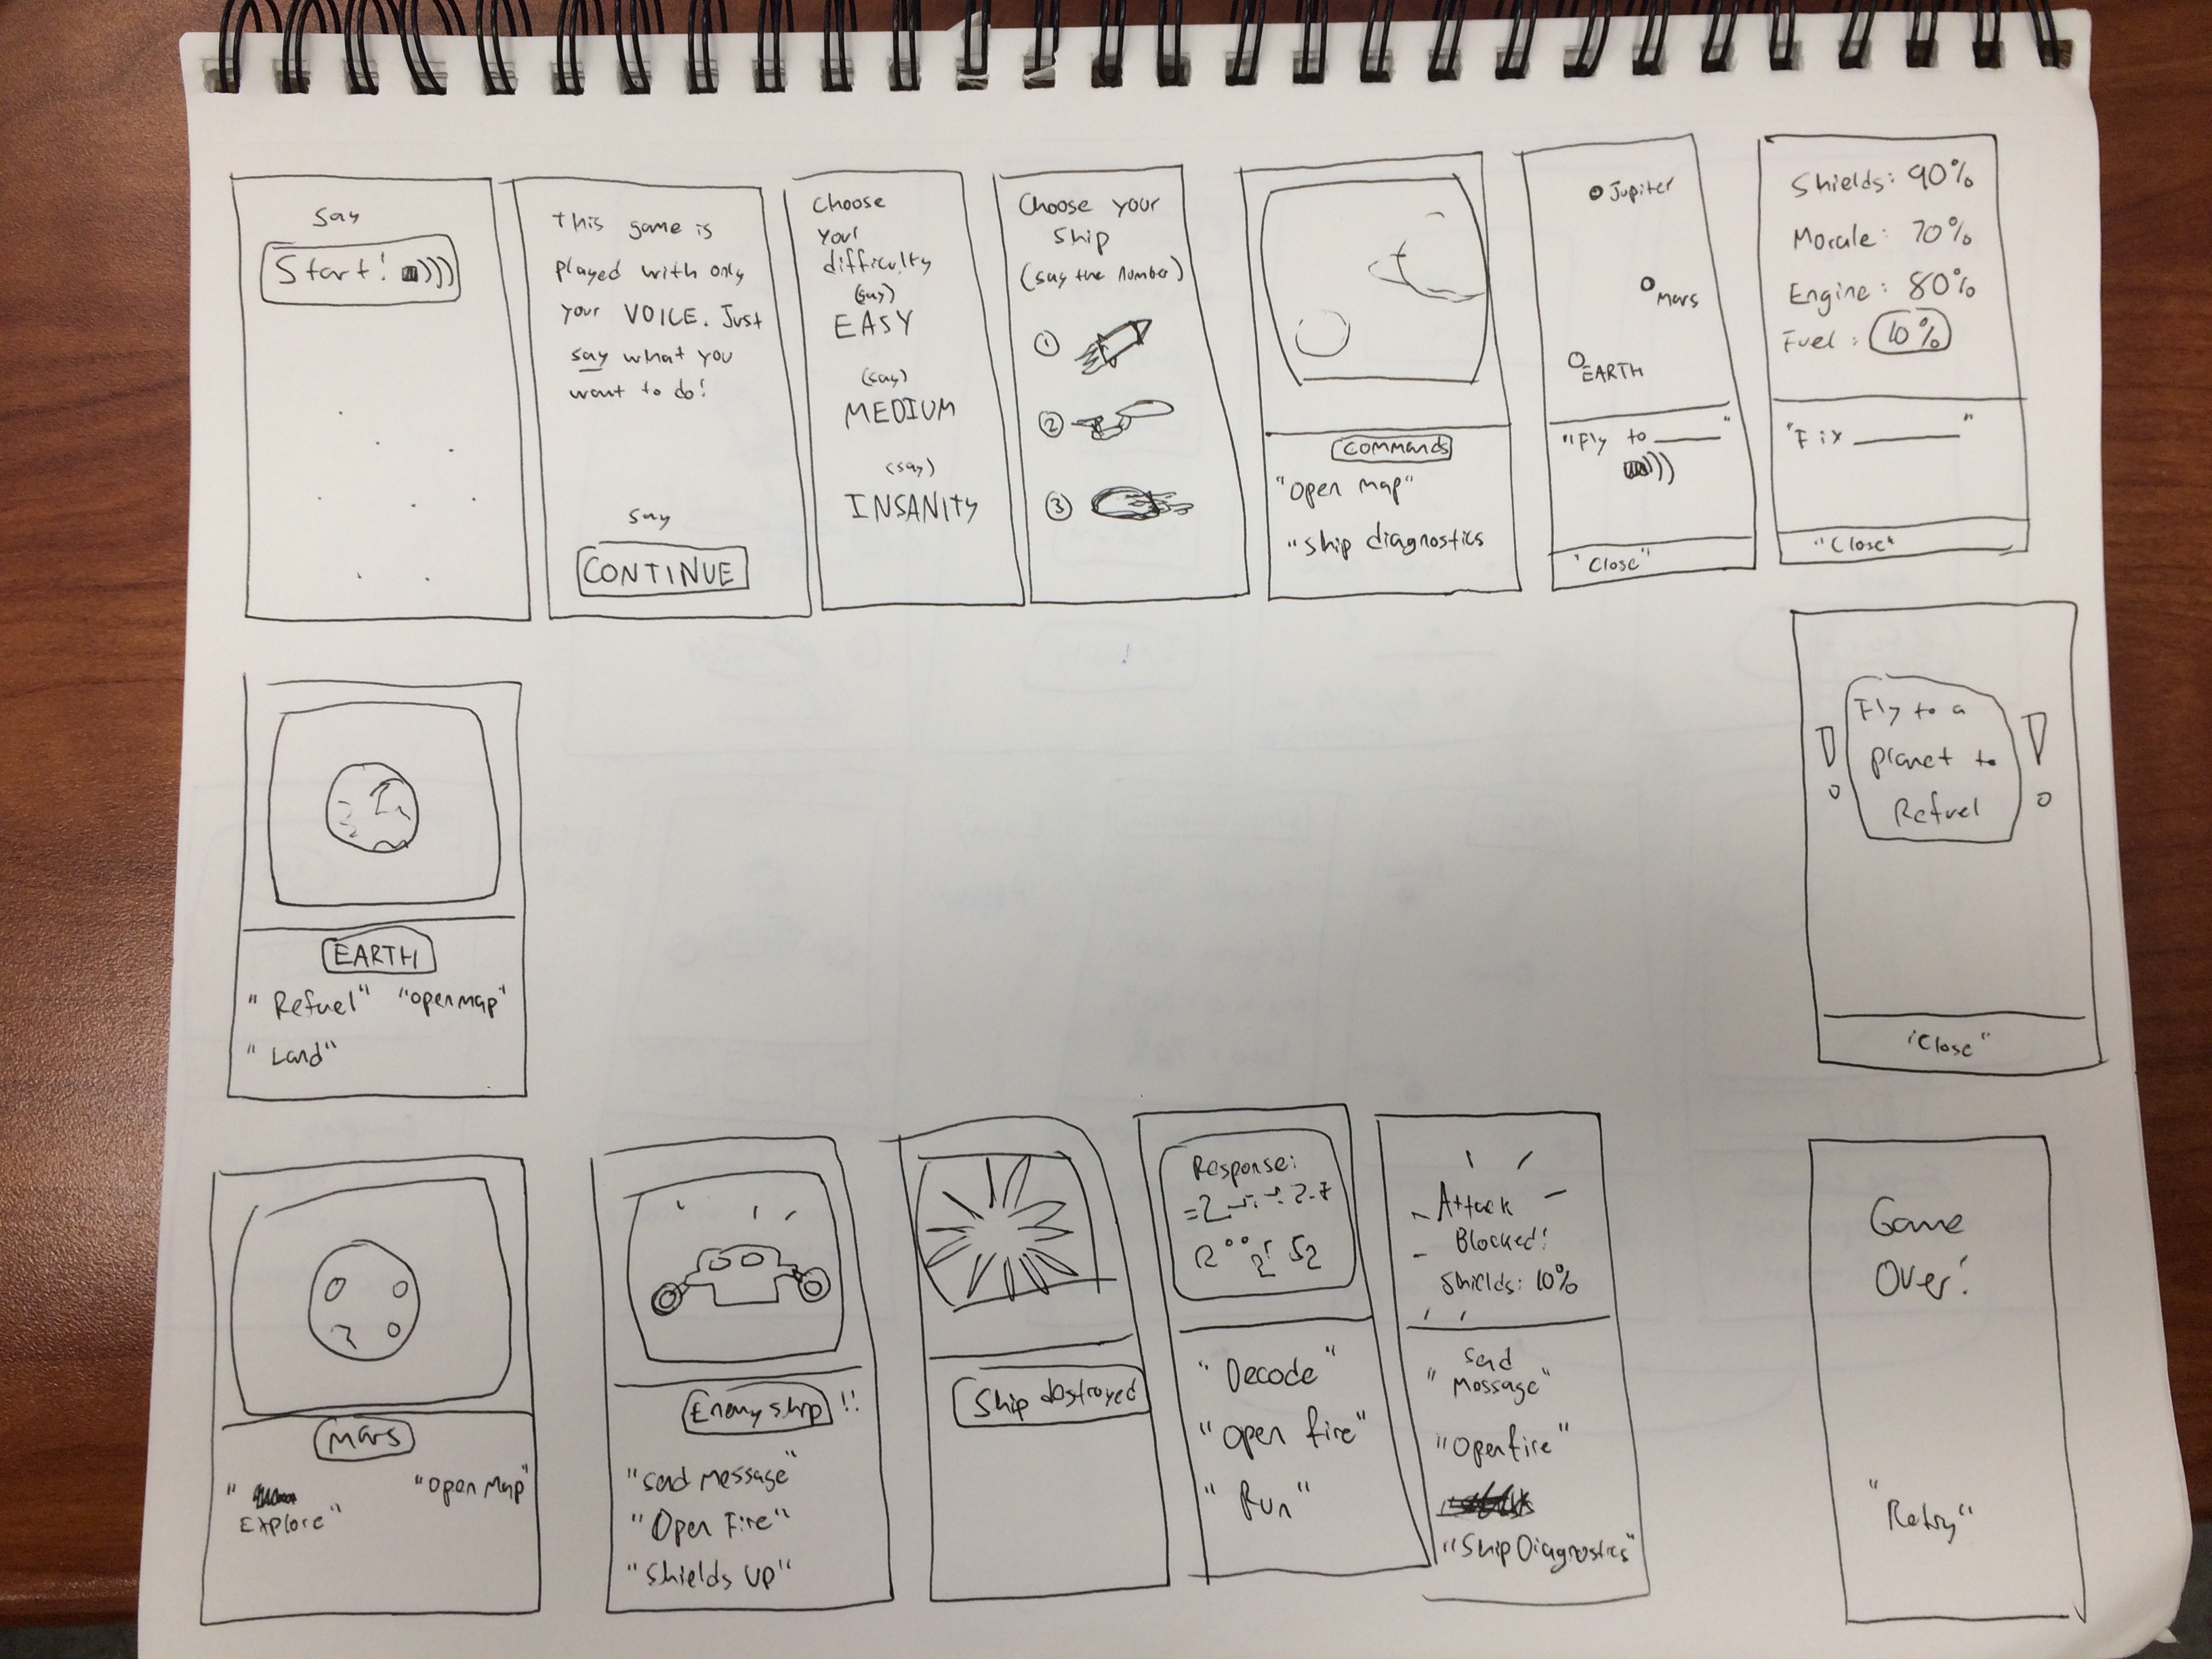 say
Start!
This game is
played with only
your VOICE. Just
say what you
want to do!
say
CONTINUE
Choose
your
difficulty
(say)
EASY
(say)
MEDIUM
(say)
INSANITY
Choose your
ship
(say the number)
1
2
3
commands
"open map"
"ship diagnostics
Jupiter
Mars
EARTH
"Fly to ___"
"Close"
Shields: 90%
Morale: 70%
Engine: 80%
Fuel: 10%
"Fix ___"
"Close"
EARTH
"Refuel" "open map"
"Land"
Fly to a
planet to
Refuel
"Close"
Mars
"Explore" "open Map"
Enemy ship!!
"send message"
"Open Fire"
"shields up"
Ship destroyed
Response:
"Decode"
"open fire"
"Run"
Attack
Blocked!
Shields: 10%
"send
message"
"open fire"
"Ship Diagnostics"
Game
Over!
"Retry"